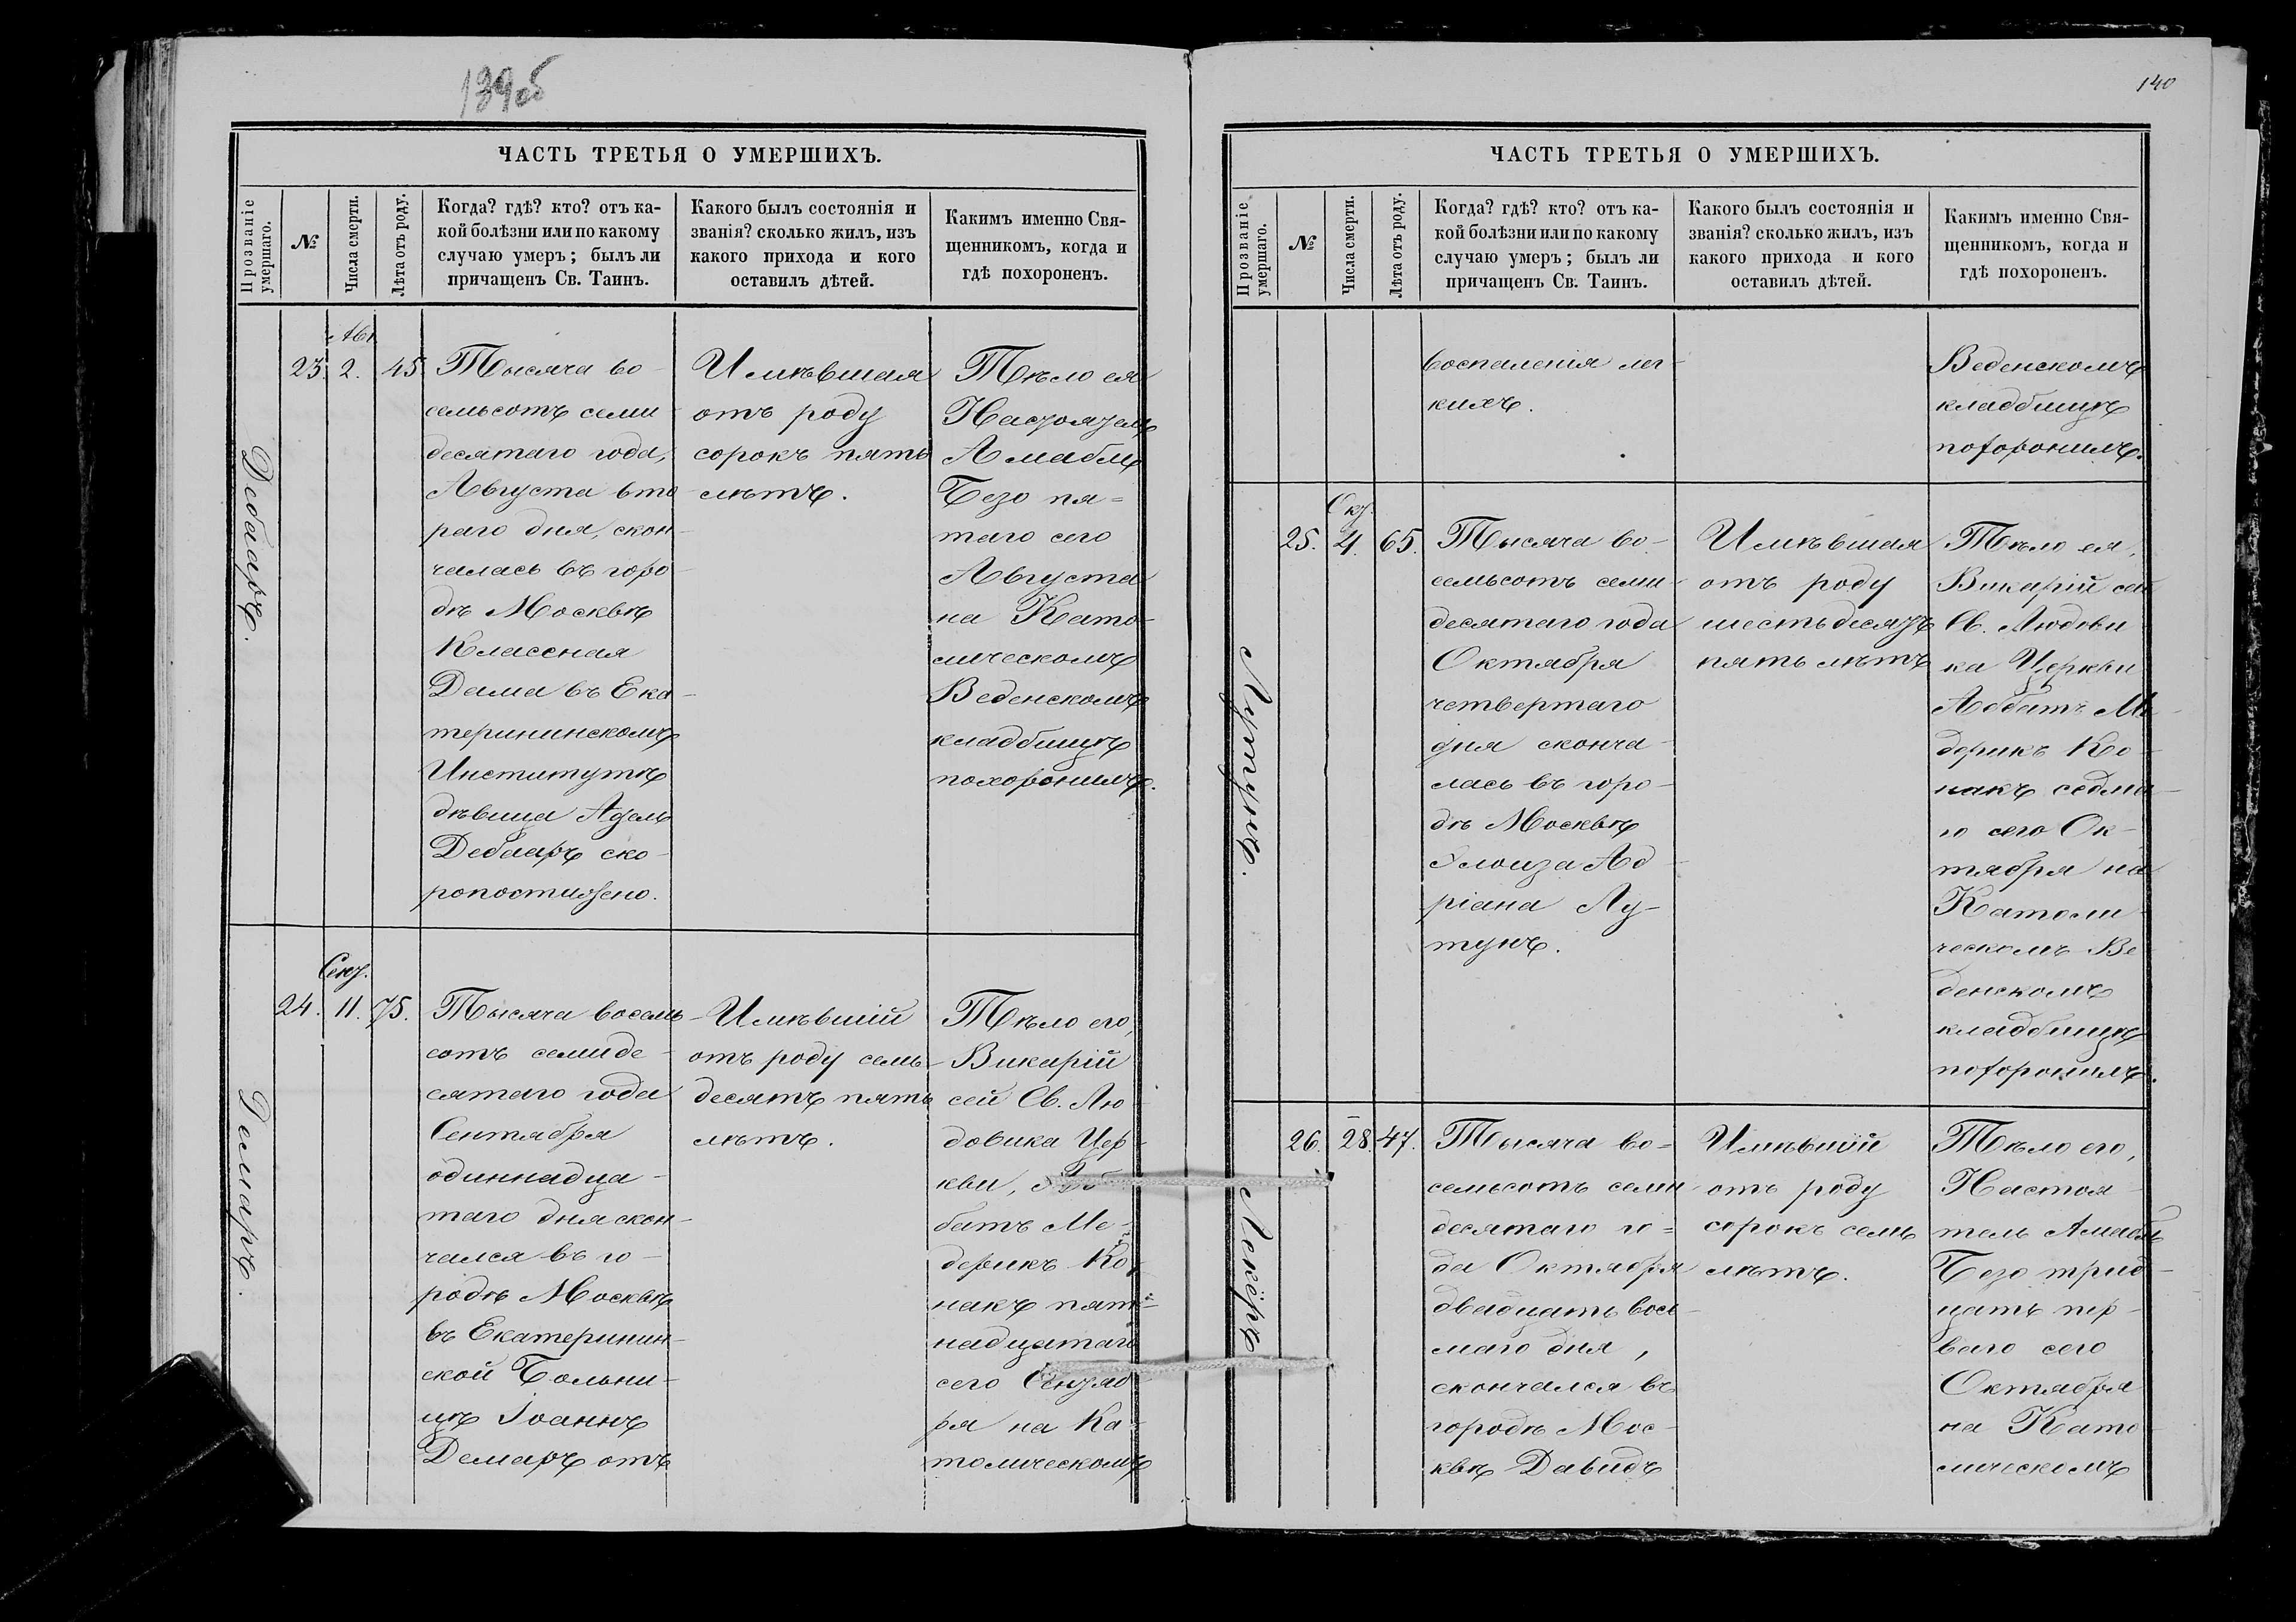 139об
ЧАСТЬ ТРЕТЬЯ О УМЕРШИХЪ.
Прозваніе
умершаго.
№
Числа смерти.
Лѣта отъ роду.
Когда? гдѣ? кто? отъ ка-
кой болѣзни или по какому
случаю умеръ; былъ ли
причащенъ Св. Таинъ.
Какого былъ состоянія и
званія? сколько жилъ, изъ
какого прихода и кого
оставилъ дѣтей.
Какимъ именно Свя-
щенникомъ, когда и
гдѣ похороненъ.
Дебааръ.
23.
Авг.
2.
45.
Тысяча во-
семьсотъ семи
десятаго года,
Августа вто
раго дня, скон-
чалась въ горо-
дѣ Москвѣ
Классная
Дама въ Ека-
терининскомъ
Институтѣ
дѣвица Адель
Дебааръ ско-
ропостижно.
Имѣвшая
отъ роду
сорокъ пять
лѣтъ.
Тѣло ея
Настоятель
Амабль
Безо пя=
таго сего
Августа
на Като-
лическомъ
Веденскомъ
кладбищѣ
похоронилъ.
Демаръ.
24.
Сент.
11.
75.
Тысяча восемь-
сотъ семиде-
сятаго года
Сентября
одиннадца-
таго дня скон-
чался въ го-
родѣ Москвѣ
въ Екатеринин-
ской Больни-
цѣ Іоаннъ
Демаръ отъ
Имѣвшій
отъ роду семь-
десятъ пять
лѣтъ.
Тѣло его,
Викарій
сей Св. Лю-
довика Цер-
кви, Аб-
батъ Ме-
дерикъ Ко-
накъ пят-
надцатаго
сего Сентяб-
ря на Ка-
толическомъ
140
ЧАСТЬ ТРЕТЬЯ О УМЕРШИХЪ.
Прозваніе
умершаго.
№
Числа смерти.
Лѣта отъ роду.
Когда? гдѣ? кто? отъ ка-
кой болѣзни или по какому
случаю умеръ; былъ ли
причащенъ Св. Таинъ.
Какого былъ состоянія и
званія? сколько жилъ, изъ
какого прихода и кого
оставилъ дѣтей.
Какимъ именно Свя-
щенникомъ, когда и
гдѣ похороненъ.
воспаленія лег-
кихъ.
Веденскомъ
кладбищѣ
похоронилъ.
Лутунъ.
25.
Окт.
4.
65.
Тысяча во-
семьсотъ семи-
десятаго года
Октября
четвертаго
дня сконча-
лась въ горо-
дѣ Москвѣ
Элоиза Ад-
ріана Лу-
тунъ.
Имѣвшая
отъ роду
шестьдесятъ
пять лѣтъ
Тѣло ея,
Викарій сей
Св. Людови
ка Церкви
Аббатъ Ме-
дерикъ Ко-
накъ седма-
го сего Ок-
тября на
Католи-
ческомъ Ве-
денскомъ
кладбищѣ
похоронилъ.
26.
28.
47.
Тысяча во=
семьсотъ семи-
десятаго го=
да Октября
двадцать вось-
маго дня,
скончался въ
городѣ Мос-
квѣ Давидъ
Имѣвшій
отъ роду
сорокъ семь
лѣтъ.
Тѣло его,
Настоя-
тель Амабль
Безо трид-
цать пер-
ваго сего
Октября
на Като-
лическомъ